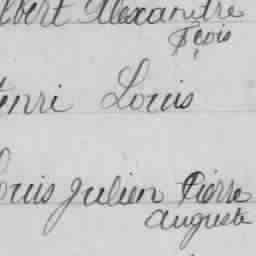 lbert Alexandre
Fçois
enri Louis
ouis Julien Pierre
Auguste